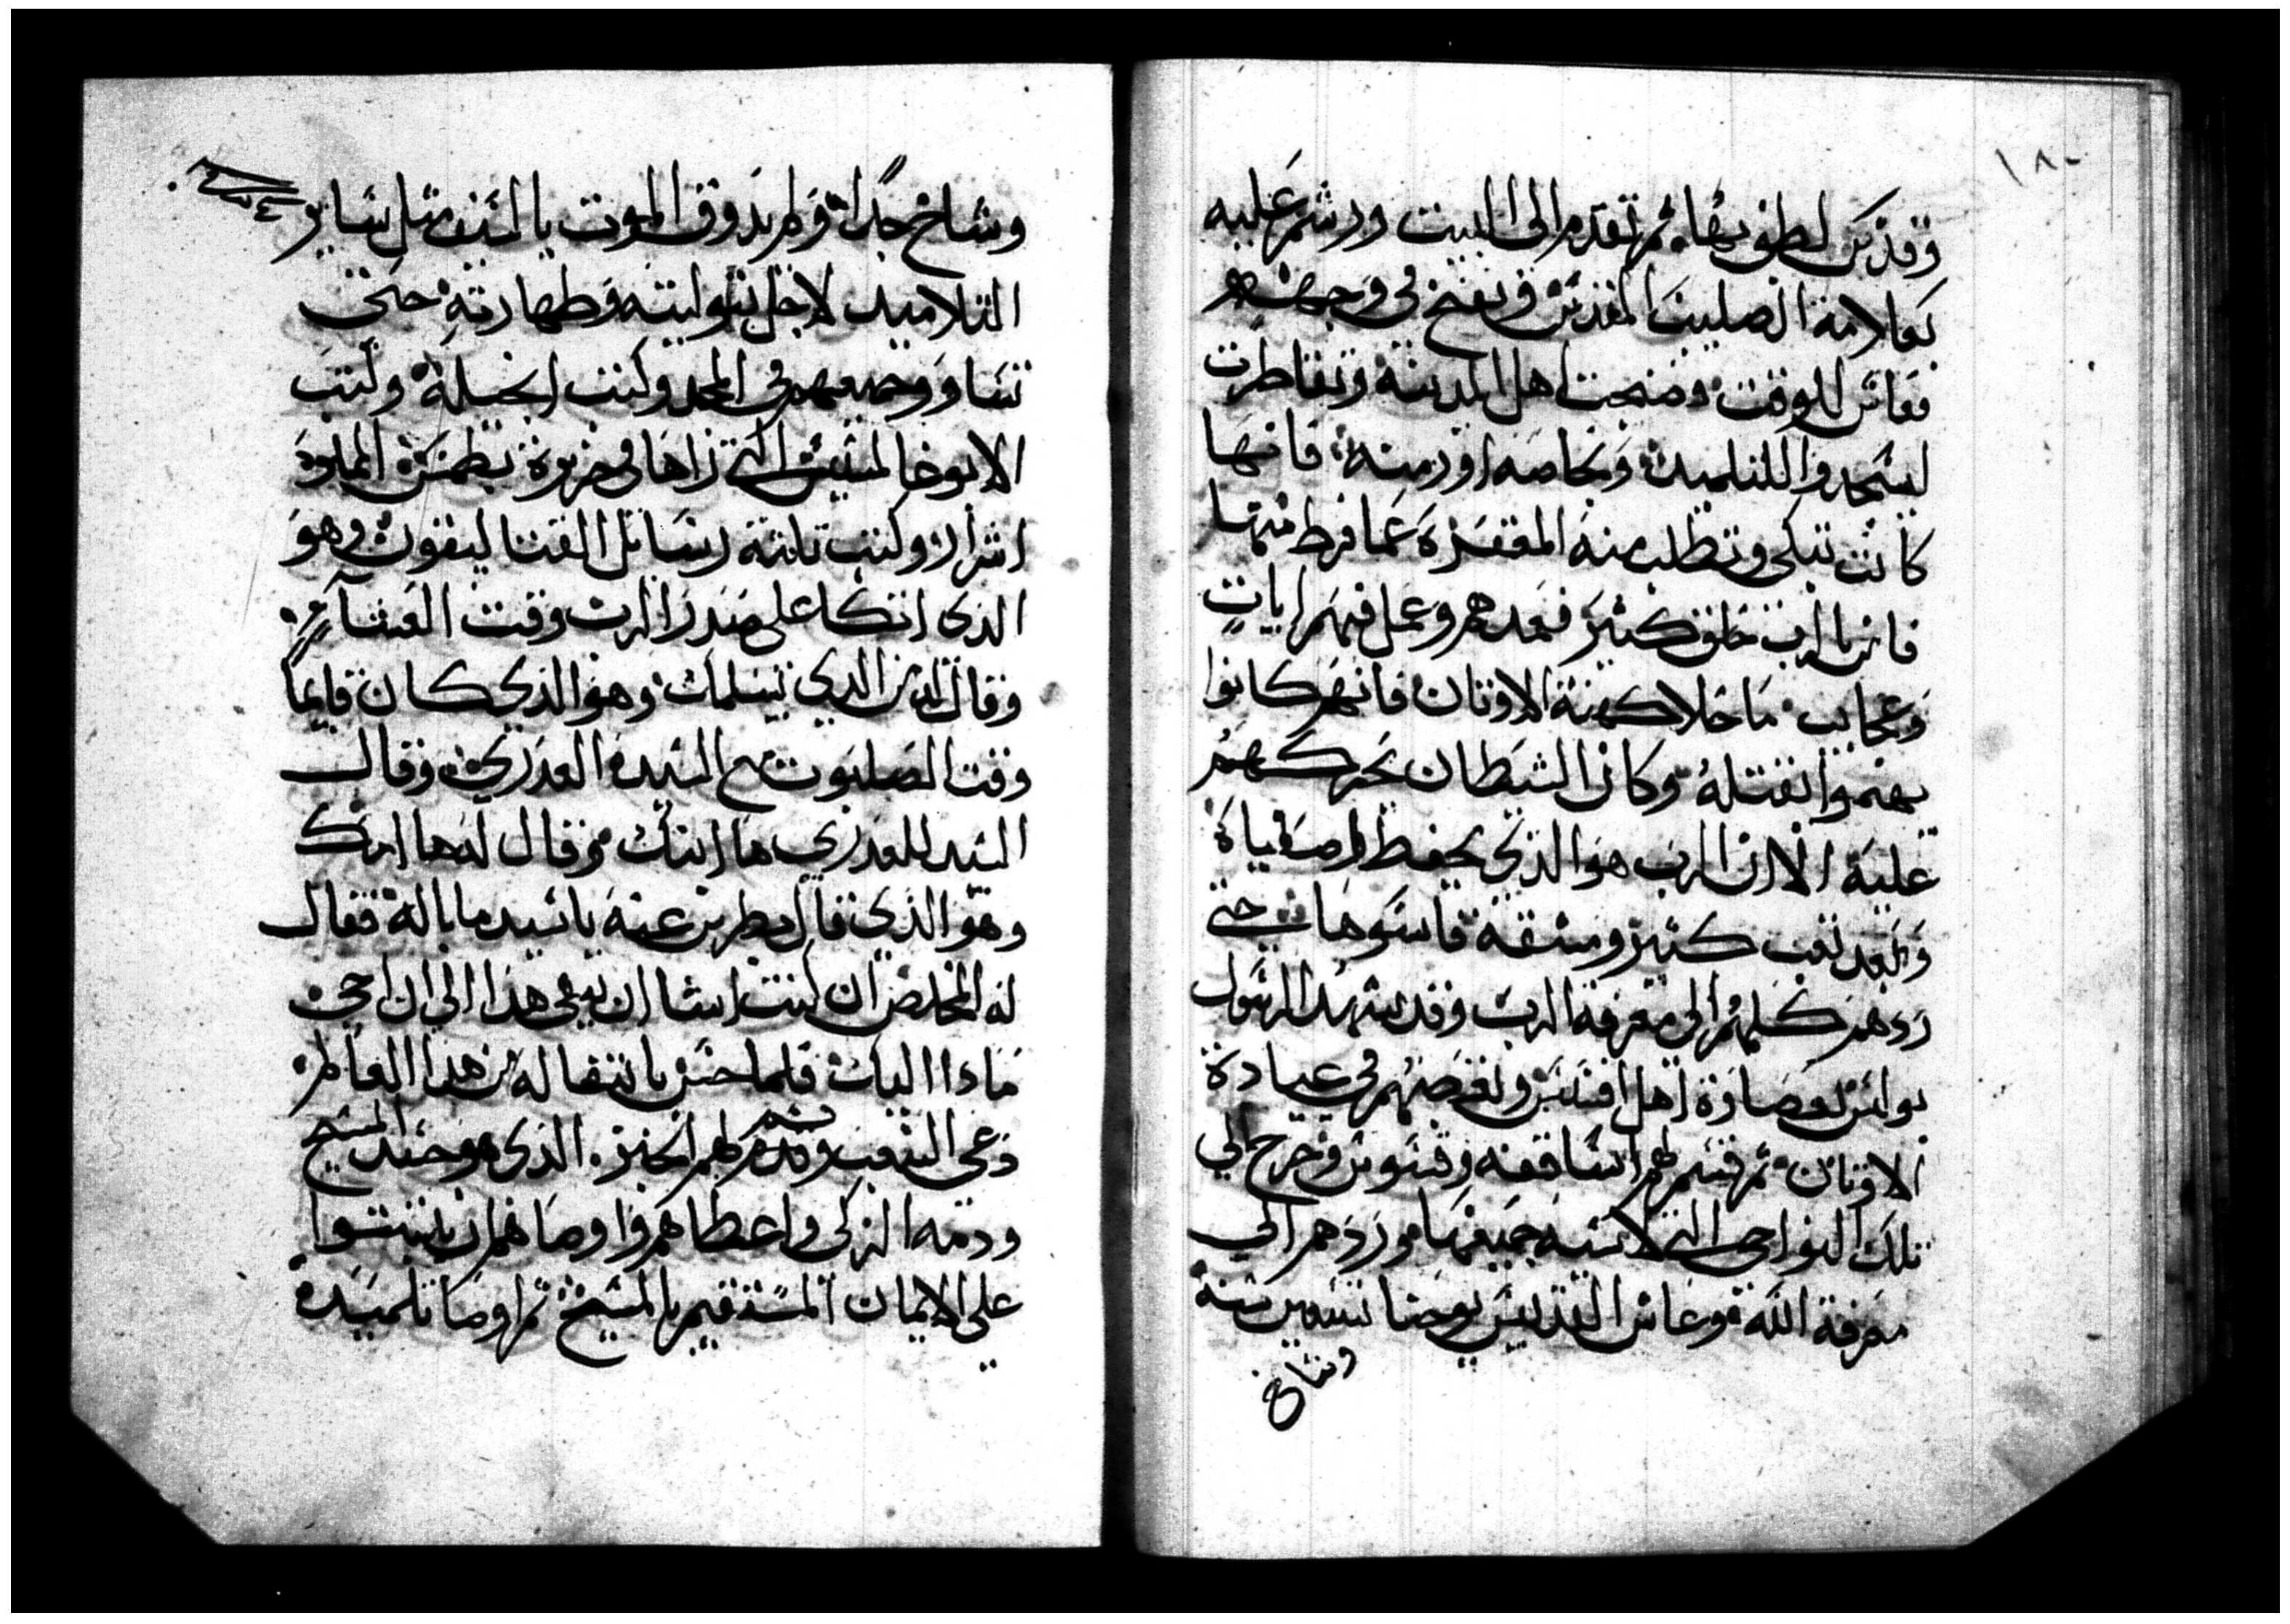 ١٨٠
وقدس لطفوبها ثم تقدم الى الميت ورشم عليه
بعلامة الصليب المقدس ونفخ في وجهه
فعاش للوقت وضجت اهل المدينة وتقاطرت
ليسجدوا للتلميد وبخاصه اورمنه فانها
كانت تبكي وتطلب منه المغفرة عما فرط منها
فامن بالرب خلق كثير فعمدهم وعمل فيهم ايات
وعجايب ما خلا كهنة الاوتان فانهم كانوا
يهتموا بقتله وكان الشيطان يحركهم
عليه الا ان الرب هو الذي يحفظ اصفياه
وبعد تعب كثير ومشقة قاسوها حتى
ردهم كلهم الى معرفة الرب وقد شهد الرسول
بولس لقصاوة اهل افسس ولغرضهم في عبادة
الاوتان ثم قسم لهم اساقفه وقسوس وخرج الي
تلك النواحي التي لاسيه جميعها وردهم الي
معرفة الله وعاش القديس يوحنا تسعين سنة
وشاخ
وشاخ جدا ولم يدوق الموت بالسيف مثل ساير
التلاميد لاجل بتوليته وطهارته حتى
تساوو جميعهم في المجد وكتب انجيله وكتب
الابوغالمسيس التي راها في جزيرة بطمس المملوة
اسرار وكتب تلتة رسايل القتاليقون وهو
الذي اتكا على صدر الرب وقت العشا
وقال له من الدي يسلمك وهو الذي كان قايما
وقت الصلبوت مع السيدة العدري وقال
السيد للعدري ها ابنك وقال له ها امك
وهو الذي قال بطرس عنه ياسيد ما باله فقال
له المخلص ان كنت اشا ان يبقى هذا الي ان اجي
مادا اليك فلما حس بانتقاله من هذا العالم
دعى الشعب وقسم لهم الخبز الذي هو جسد المسيح
ودمه الزكي واعطاهم واوصاهم ان يثبتوا
على الايمان المستقيم بالمسيح ثم اوصا تلميده